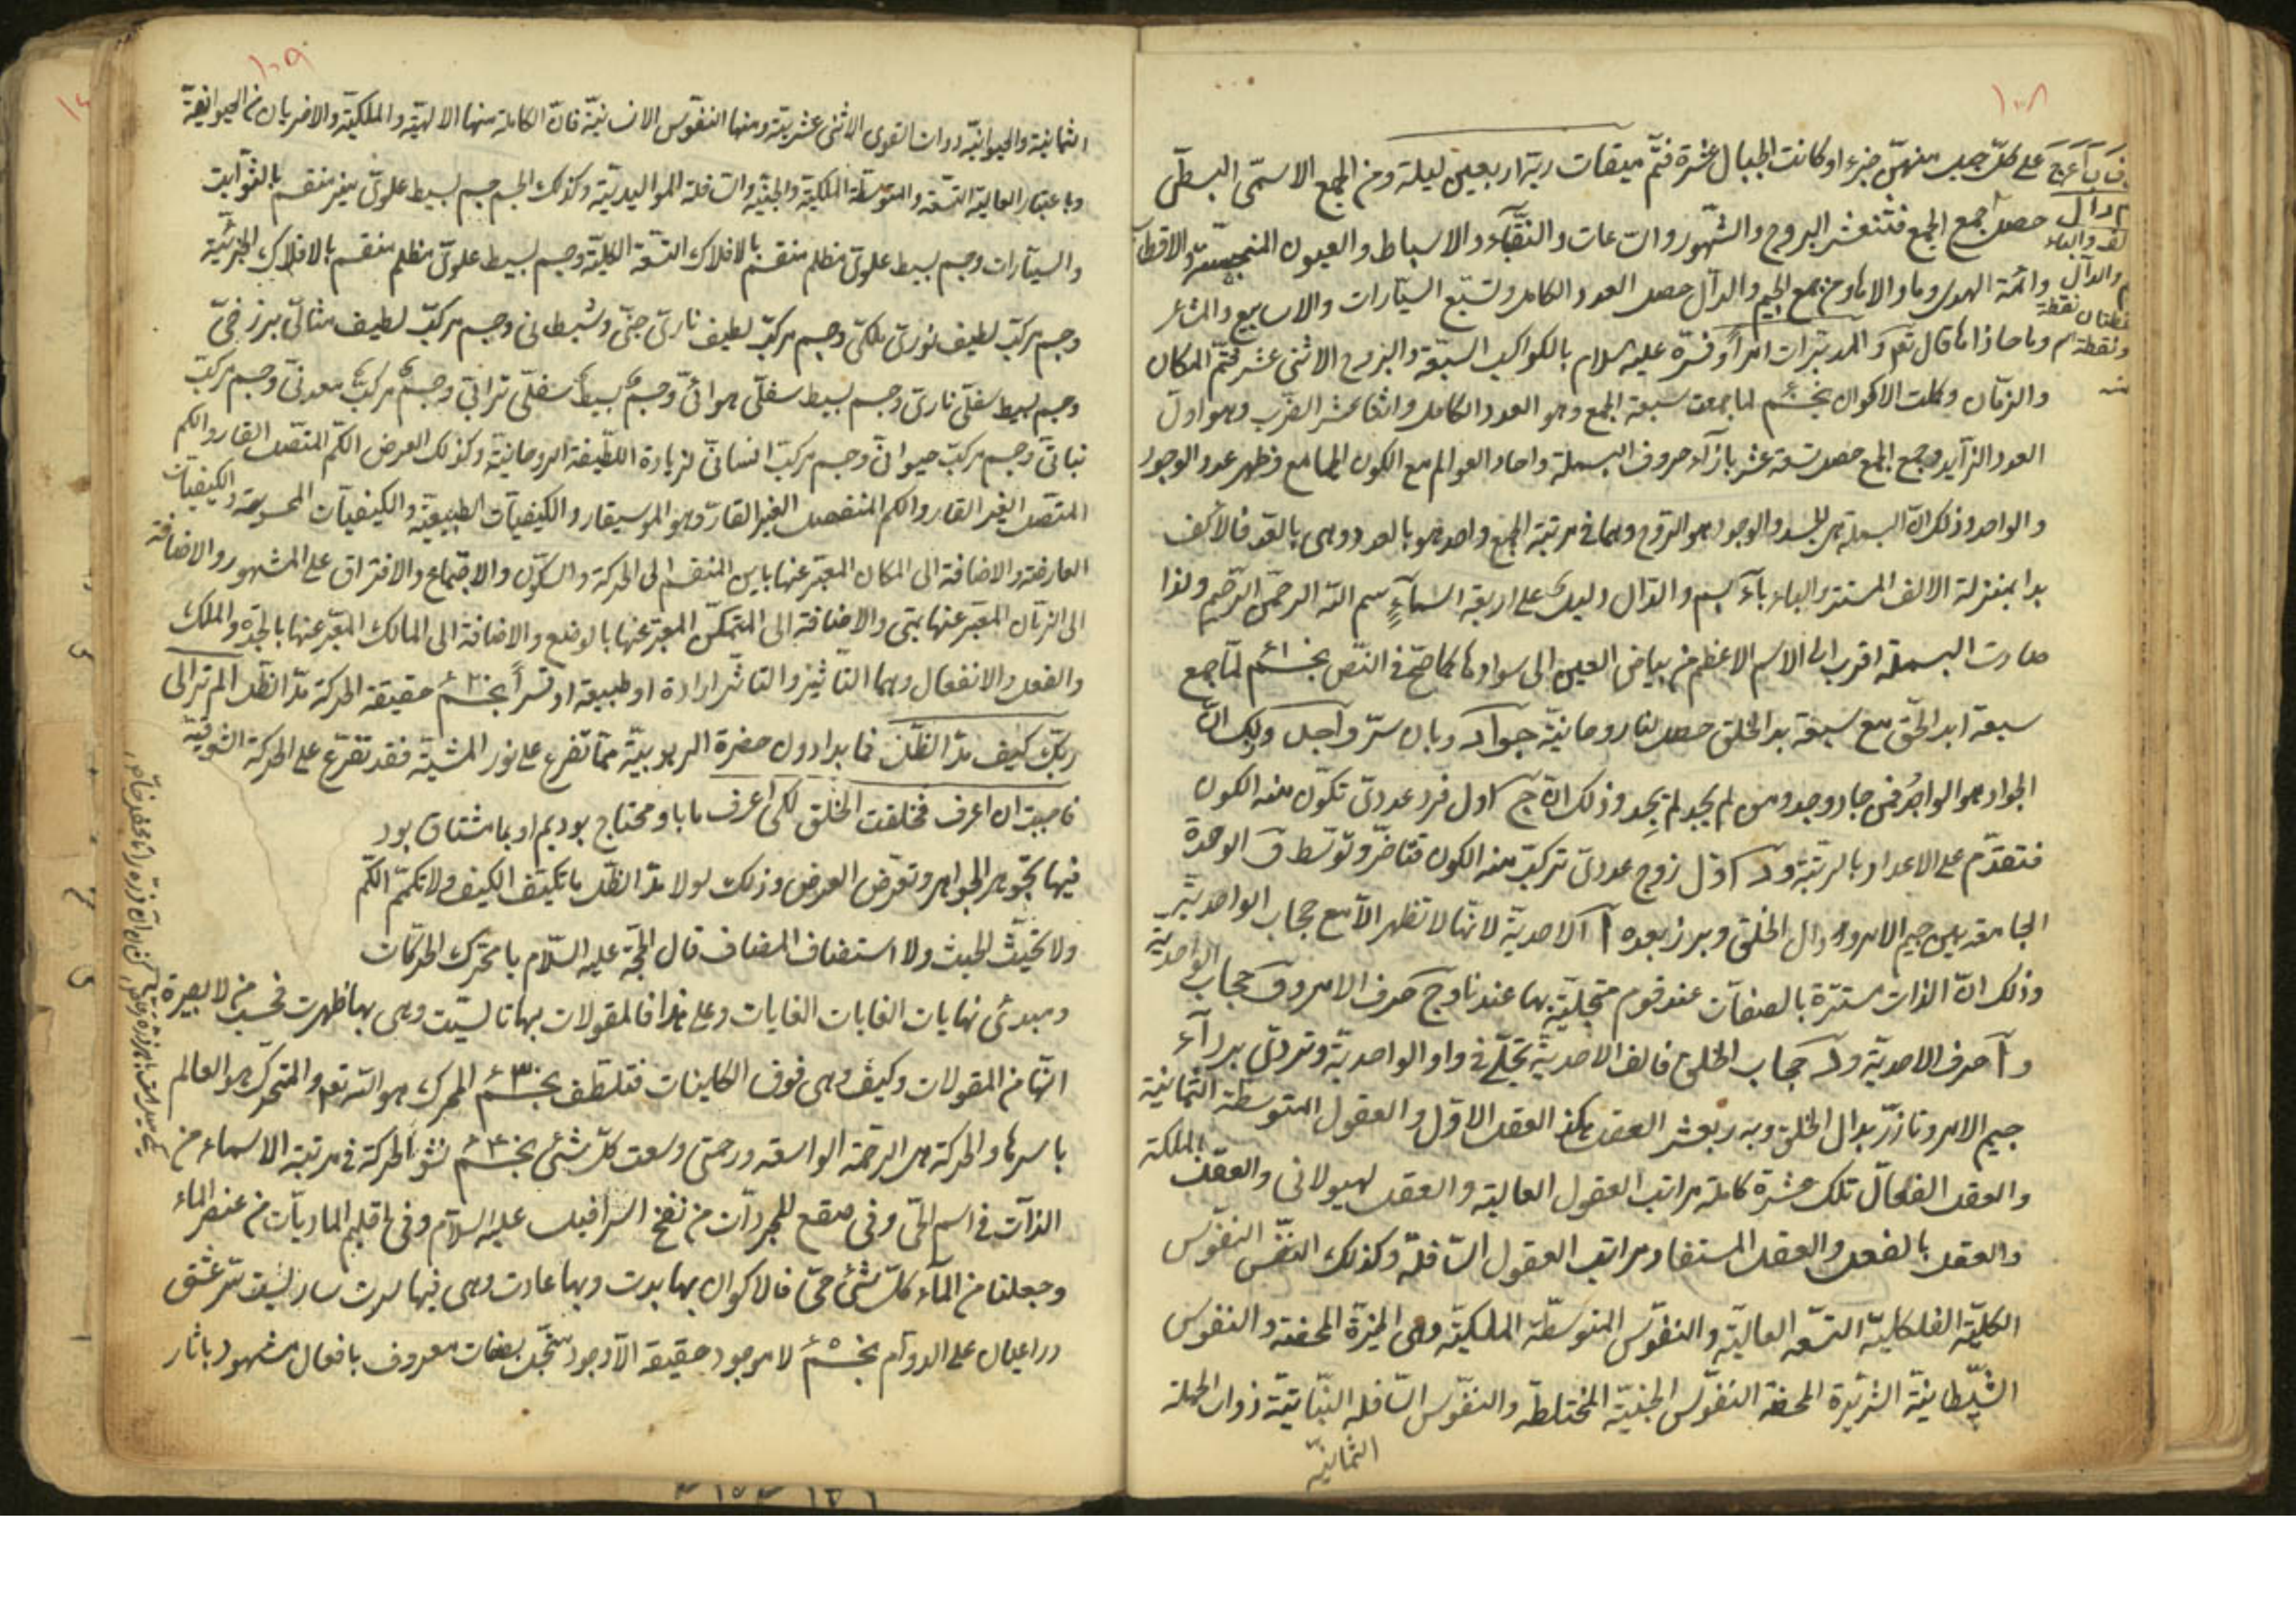 ١٠٨
على كلّ جبل منهنّ جزء او كانت الجبال عشرة فتمّ ميقات ربّه اربعين ليلة ومن الجمع الاسمّى البسطّى
حصل جمع الجمع فتنعشر البروج والشهور والساعات والنقباء والاسباط والعيون المنبجسة والاقطاب
وائمّة الهدى وما والاها ومن جمع الجيم والدال حصل العدد الكامل وتسبّع السيّارات والاسابيع والمشاعر
وما حاذاها قال تع والمدبّرات امراً وفسّره عليه السلام بالكواكب السبعة والبروج الاثنى عشر فتمّ المكان
والزمان وكملت الاكوان لما جمعت سبعة الجمع وهو العدد الكامل واثنا عشر الضرب وهو اول
العدد الزايد وجمع الجمع حصل تسعة عشر بازآء حروف البسملة واحاد العوالم مع الكون الجامع فظهر عدد الوجود
والواحد وذلك انّ البسملة هى الجسد والوجود هو الروح وهما فى مرتبة الجمع واحد هو بالعدد وهى بالقد فالالف
بدا بمنزلة الالف المستتر والباء باء بسم والدال دليل على اربعة اسماء بسم الله الرحمن الرحيم ولذا
صارت البسملة اقرب الى الاسم الاعظم من بياض العين الى سوادها كما صحّ فى النصّ لما جمع
سبعة ابد الحقّ مع سبعة بد الخلق حصل لنا روحانيّة جواد وبان سرّ واجل وليك انّ
الجواد هو الواجد فمن جاد وجد ومن لم يجد لم يجد وذلك انّ ج اول فرد عددىّ تكوّن منه الكون
فتقدّم على الاعداد بالرتبة ود اوّل زوج عددىّ تركّب منه الكون فتاخّر وتوسّط و الوحدة
الجامعة بين جيم الامر و دال الخلق وبرز بعده ا الاحديّة لانّها لا تظهر الّا مع حجاب الواحديّة
وذلك انّ الذات مستترة بالصفات عند قوم متجلّية بها عندنا و ج حرف الامر و و حجاب الواحديّة
و ا حرف الاحديّة و د حجاب الخلق فالف الاحديّة تجلّى فى واو الواحديّة وتردّى برداء
جيم الامر وتازّر بدال الخلق وبه ربعشر العقل هكذا العقل الاوّل والعقول المتوسّطة الثمانية
والعقل الفعّال تلك عشرة كاملة مراتب العقول العالية والعقل لهيولانى والعقل بالملكة
والعقل بالفعل والعقل المستفاد مراتب العقول السافلة وكذلك النفس النفوس
الكليّة الفلكليّة التسعة العالية والنفوس المتوسّطة الملكيّة وهى الخيّرة المحضة والنفوس
الشيطانيّة الشريرة المحضة النفوس الجنيّة المختلطة والنفوس السافلة النباتيّة ذوات الجملة
الثمانيّة
١٠٩
الثمانيّة والحيوانيّة ذوات القوى الاثنى عشريّة ومنها النفوس الانسانيّة فانّ الكاملة منها الالهيّة والملكيّة والاخريان من الحيوانيّة
وباعتبار العالية التسعة والمتوسّطة الملكيّة والجنيّة والسافلة المواليديّة وكذلك الجسم جسم بسيط علوىّ منير منقسم بالثوابت
والسيّارات وجسم بسيط علوىّ مظلم منقسم بالافلاك التسعة الكليّة وجسم بسيط علوىّ مظلم منقسم بالافلاك الجزئيّة
وجسم مركّب لطيف نورىّ ملكىّ وجسم مركّب لطيف نارىّ جنّى وشيطانى وجسم مركّب لطيف مثالىّ برزخىّ
وجسم بسيط سفلّى نارىّ وجسم بسيط سفلّى هوائىّ وجسم بسيط سفلّى ترابىّ وجسم مركّب معدنىّ وجسم مركّب
نباتىّ وجسم مركّب حيوانىّ وجسم مركّب انسانىّ لزيادة اللطيفة الروحانيّة وكذلك العرض الكمّ المتّصل القار والكم
المتّصل الغير القار والكم المنفصل الغير القارّ وهو الموسيقار والكيفيّات الطبيعيّة والكيفيّات المحسوسة والكيفيّات
العارضة والاضافة الى المكان المعبّر عنها باين المنقسم الى الحركة والسكون والاجتماع والافتراق على المشهور والاضافة
الى الزمان المعبّر عنها بمتى والاضافة الى المتمكّن المعبّر عنها بالوضع والاضافة الى المالك المعبّر عنها بالجدة والملك
والفعل والانفعال وهما التاثير والتاثّر ارادة او طبيعة او قسراً حقيقة الحركة مدّ الظل الم تر الى
ربّك كيف مدّ الظلّ فما بدا دون حضرة الربوبيّة ممّا تفرّع على نور المشيّة فقد تفرّع على الحركة الشوقيّة
فاحببت ان اعرف فخلقت الخلق لكى اعرف ما باو محتاج بوديم او بما مشتاق بود
فيها تجوهر الجواهر وتعرّض العرض وذلك لولا مدّ الظل ما تكيّف الكيف ولا تكمّم الكمّ
ولا تحيّث الحيث ولا استضاف المضاف قال الحجّة عليه السّلام يا محرّك الحركات
ومبدئ نهايات الغايات الغايات وعلى هذا فالمقولات بها تاسّست وهى بها ظهرت فحسب من لا بصيرة
انّها من المقولات وكيف وهى فوق الكاينات فتلطّف المحرك هو الله تع والمتحرّك هو العالم
باسرها والحركة هى الرحمة الواسعة ورحمتى وسعت كلّ شئ نشؤ الحركة فى مرتبة الاسماء من
الذات فى اسم الحىّ وفى صقع المجردات من نفخ اسرافيل عليه السلام وفى اقليم الماديات من عنصر الماء
وجعلنا من الماء كلّ شئ حىّ فالاكوان بها بدت وبها عادت وهى فيها سرت ساريست سرّ عشق
در اعيان على الدوام لا موجود حقيقة الّا وجود متجّل بصفات معروف بافعال مشهود باثار